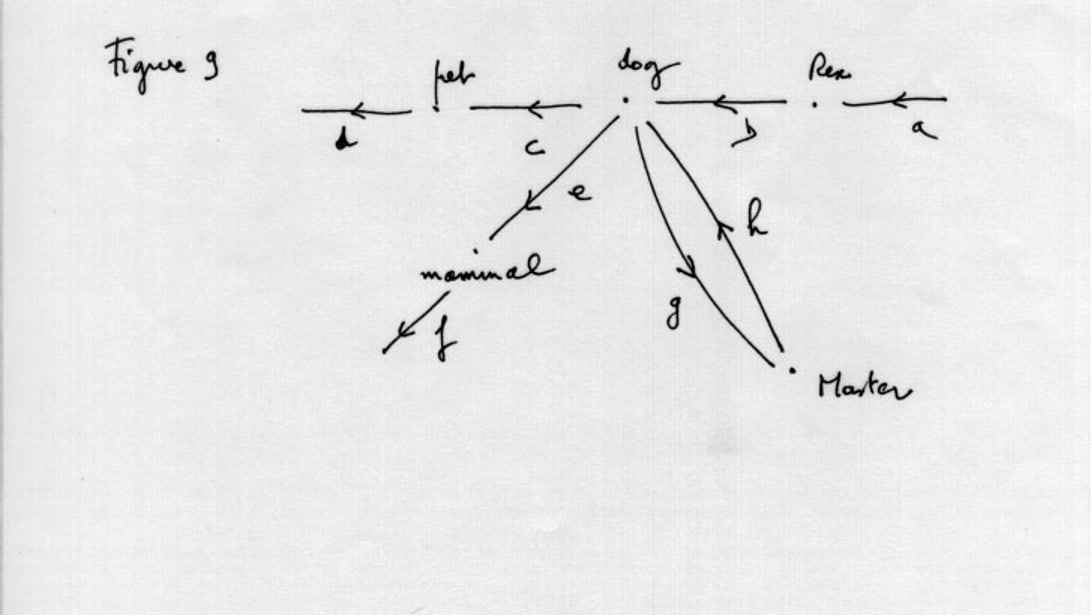 Figure 9
pet
dog
Rex
d
c
b
a
e
h
mammal
g
f
Master